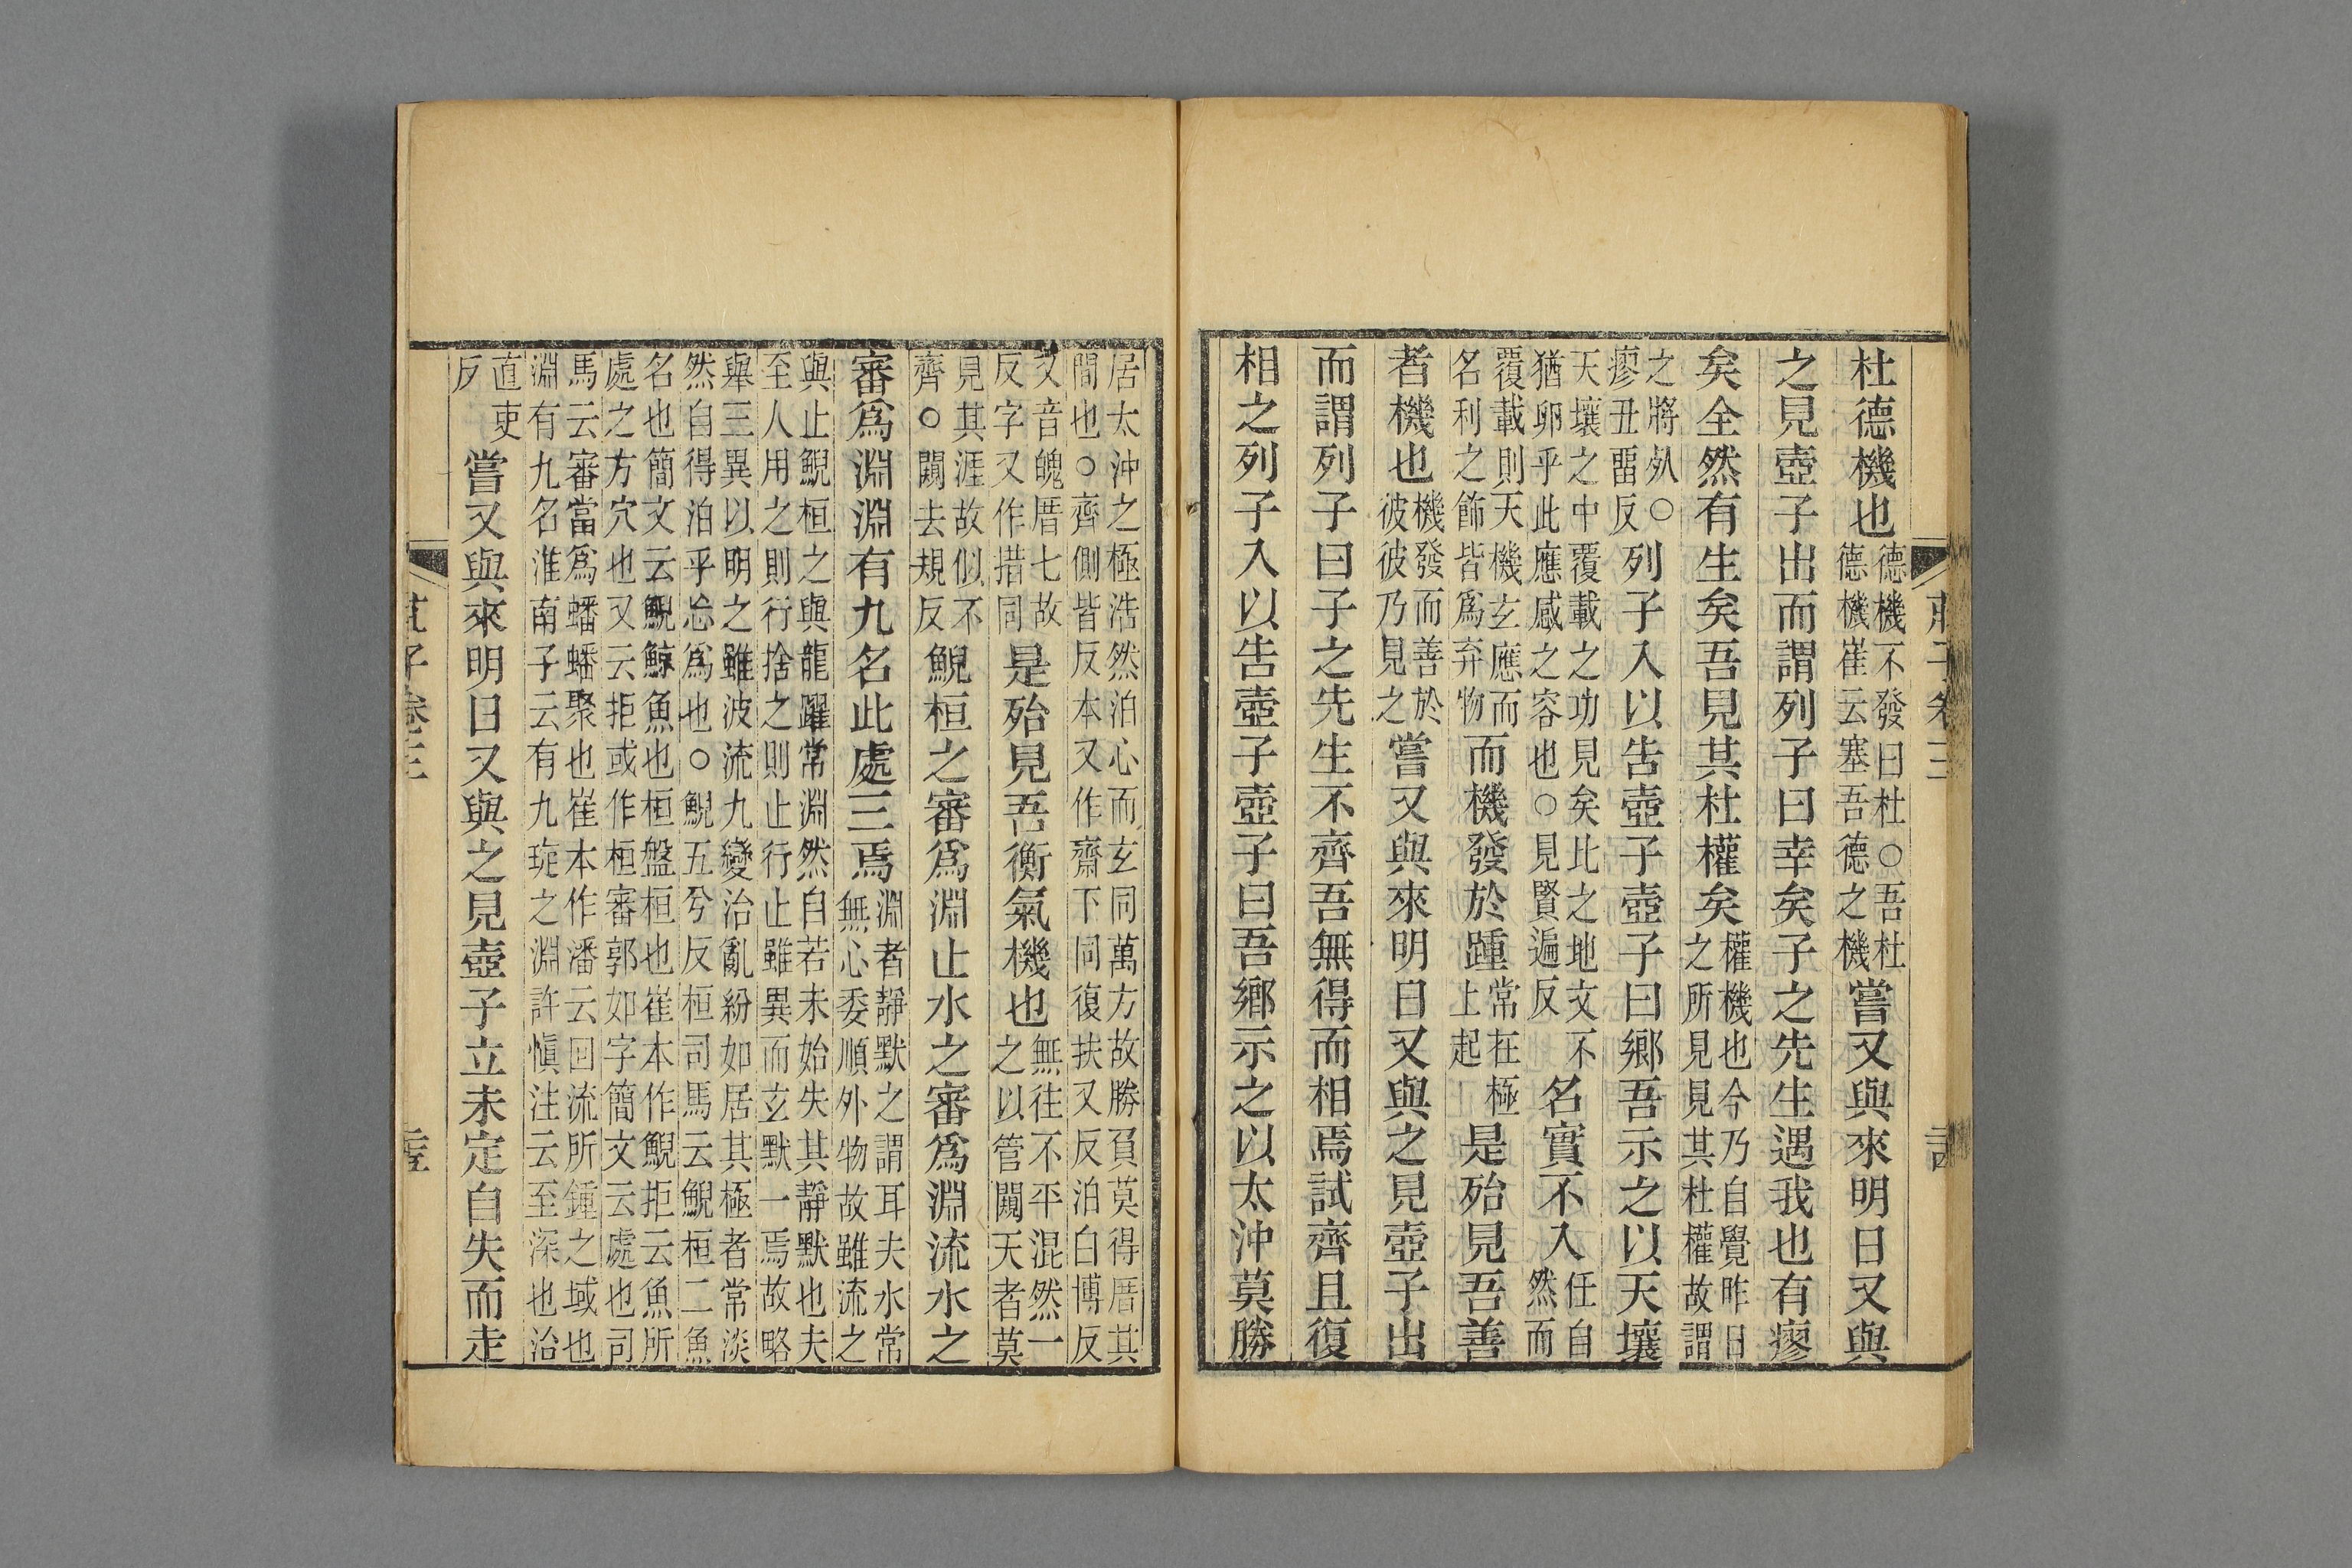 莊子卷三
杜德機也德機不發曰杜○吾杜德機崔云塞吾德之機嘗又與來明日又與
之見壺子出而謂列子曰幸矣子之先生遇我也有瘳
矣全然有生矣吾見其杜權矣權機也今乃自覺昨日之所見見其杜權故謂
之將死○瘳丑畱反列子入以告壺子壺子曰鄉吾示之以天壤
天壤之中覆載之功見矣比之地文不猶卵乎此應感之容也○見賢遍反名實不入任自然而
覆載則天機玄應而名利之飾皆爲弃物而機發於踵常在極上起是殆見吾善
者機也機發而善於彼彼乃見之嘗又與來明日又與之見壺子出
而謂列子曰子之先生不齊吾無得而相焉試齊且復
相之列子入以告壺子壺子曰吾鄉示之以太沖莫勝
居太沖之極浩然泊心而玄同萬方故勝負莫得厝其間也○齊側皆反本又作齋下同復扶又反泊白博反
又音魄厝七故反字又作措同是殆見吾衡氣機也無往不平混然一之以管闚天者莫
見其涯故似不齊○闚去規反鯢桓之審爲淵止水之審爲淵流水之
審爲淵淵有九名此處三焉淵者靜默之謂耳夫水常無心委順外物故雖流之
與止鯢桓之與龍躍常淵然自若未始失其靜默也夫至人用之則行捨之則止行止雖異而玄默一焉故略
舉三異以明之雖波流九變治亂紛如居其極者常淡然自得泊乎忘爲也○鯢五兮反桓司馬云鯢桓二魚
名也簡文云鯢鯨魚也桓盤桓也崔本作鯢拒云魚所處之方穴也又云拒或作桓審郭如字簡文云處也司
馬云審當爲蟠蟠聚也崔本作潘云回流所鍾之域也淵有九名淮南子云有九琁之淵許愼注云至深也治
直吏反嘗又與來明日又與之見壺子立未定自失而走
莊子卷三